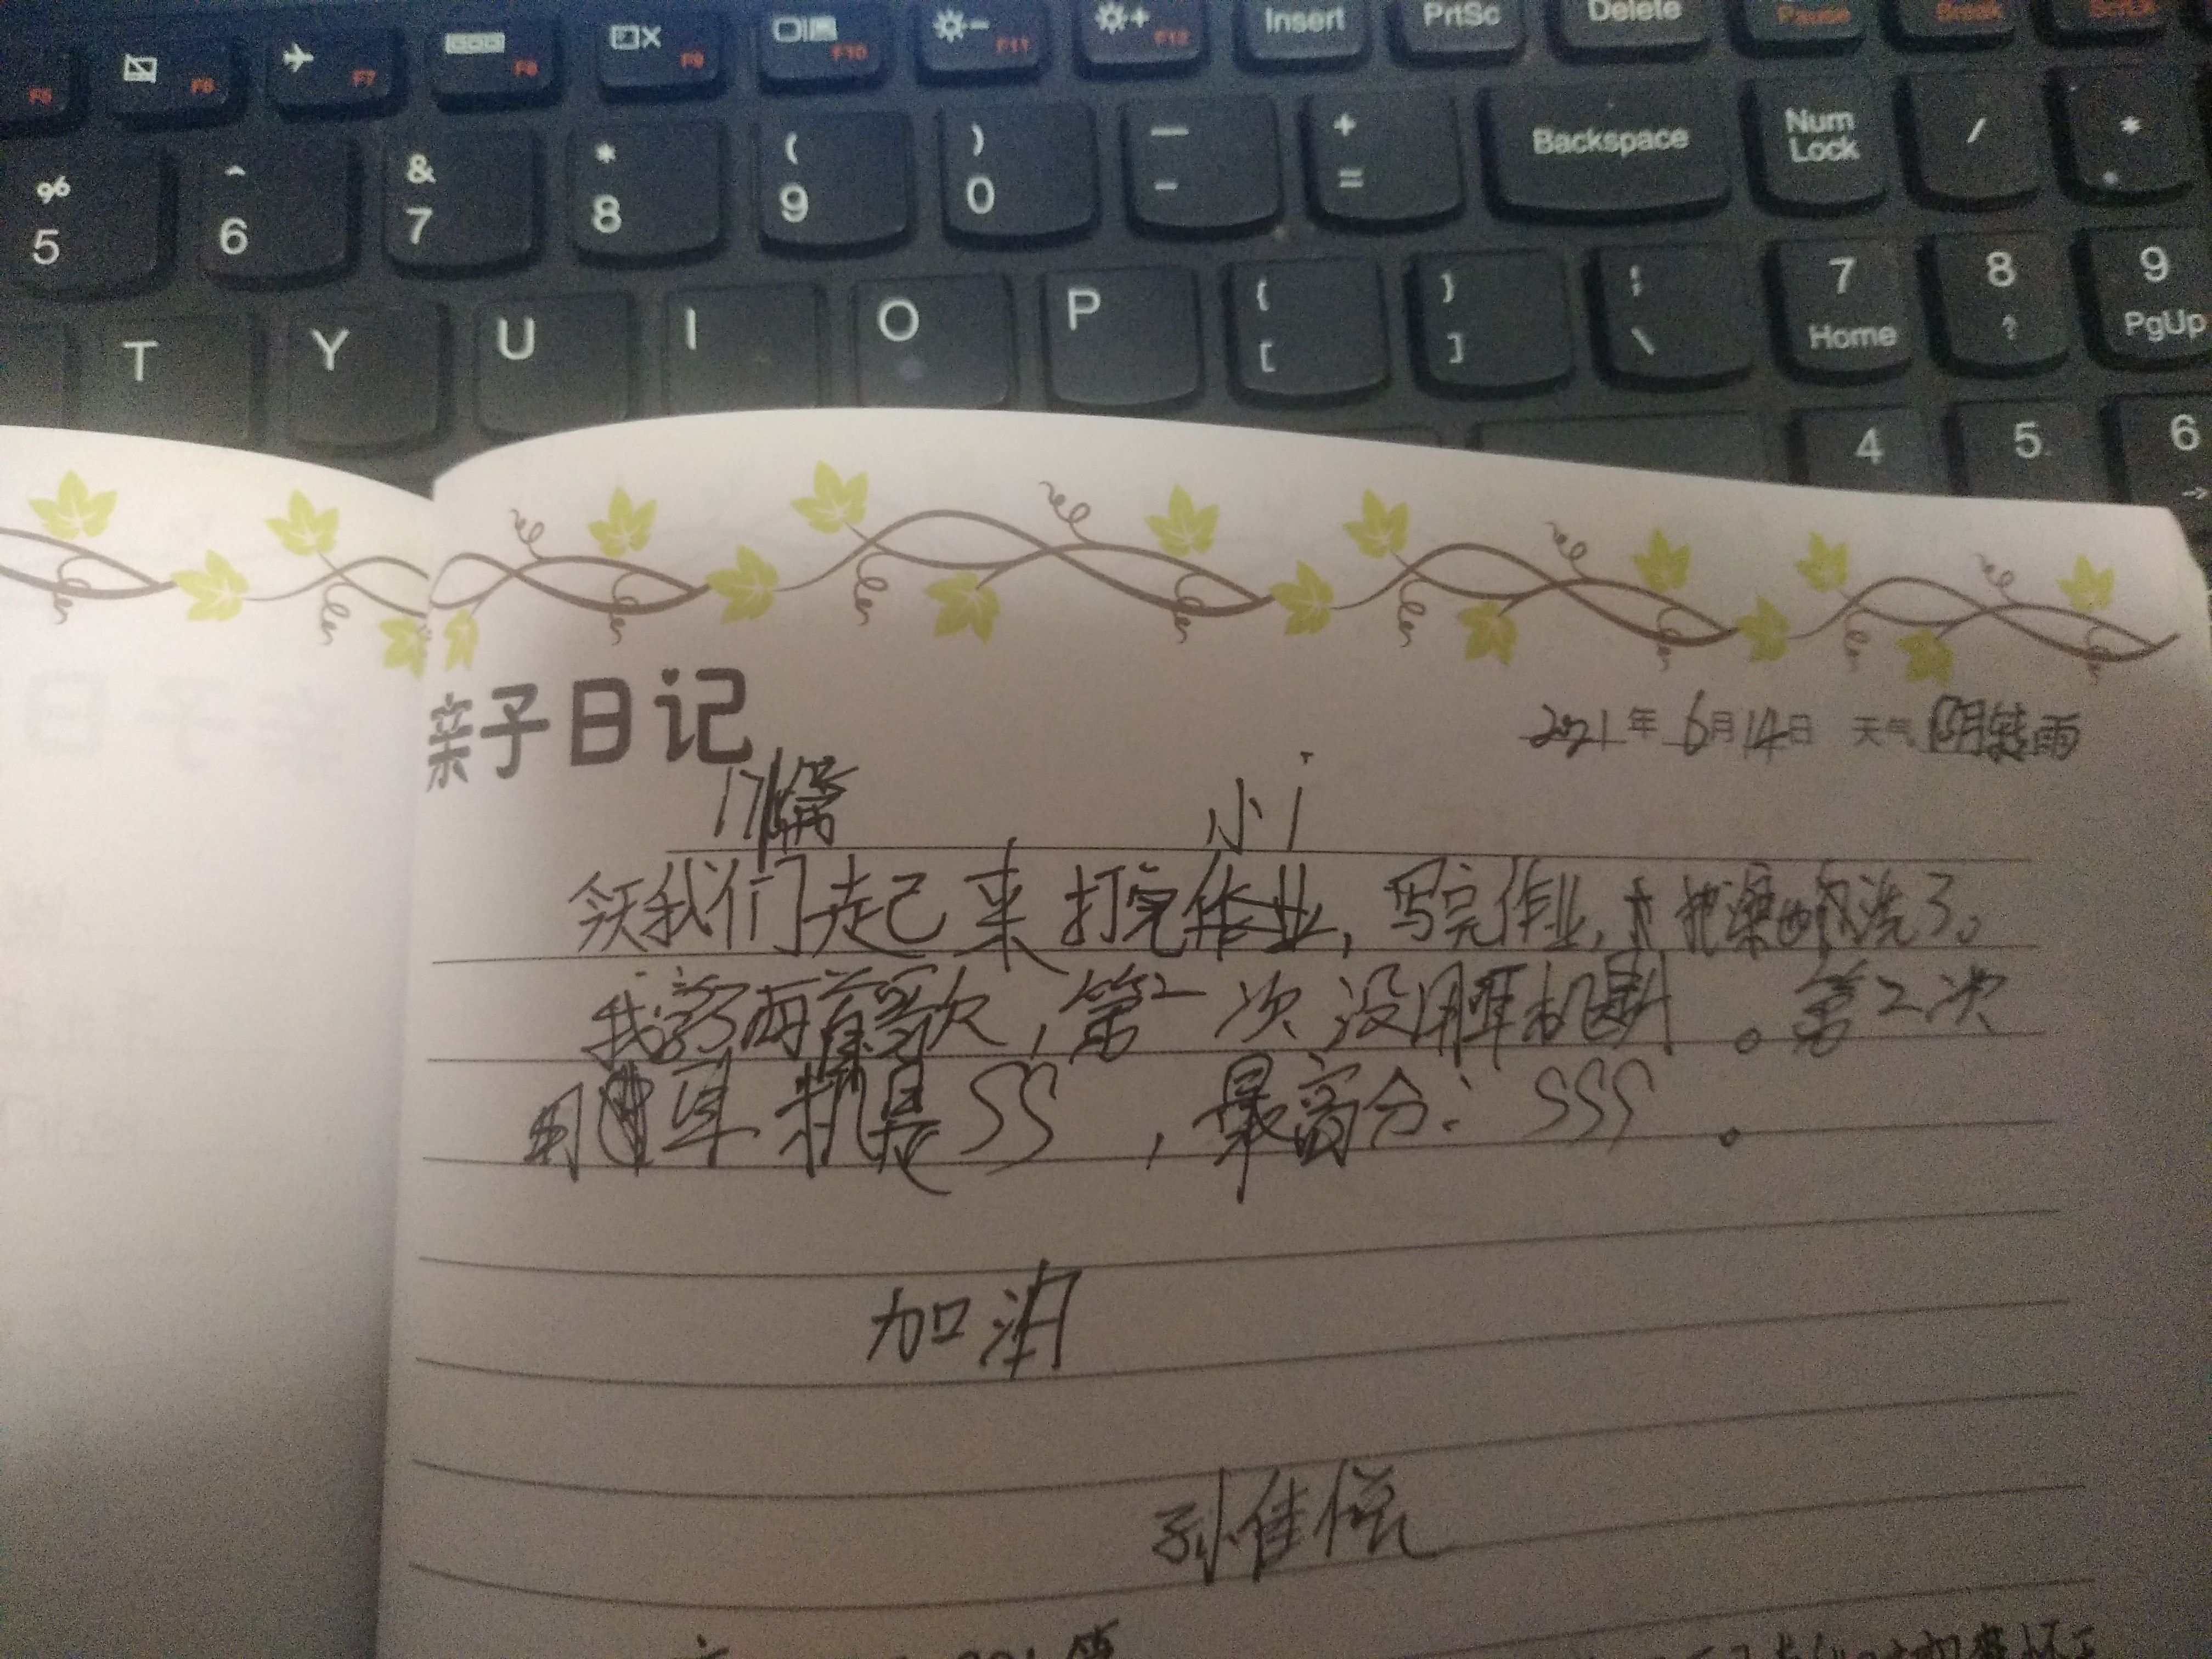 F5 F6 F7 F8 F9 F10 F11 F12 Insert PrtSc Delete Pause Break ScrLk
% 5 ^ 6 & 7 * 8 ( 9 ) 0 — - + = Backspace Num Lock / *
T Y U I O P { [ } ] \ 7 Home 8 9 PgUp
4 5 6
亲子日记
2021年 6月14日 天气 阴转雨
17篇 小
今天我们起来打完作业，写完作业，才把澡 洗了。
我 了两首歌，第一次没用耳机 。第2次
用 耳机是SS，最高分：SSS。
加油
孙佳悦